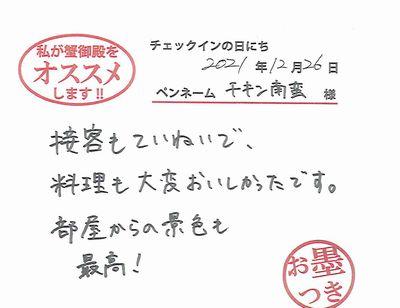 私が蟹御殿を
オススメ
します!!
チェックインの日にち
2021 年 12 月 26 日
ペンネーム チキン南蛮 様
接客もていねいで、
料理も大変おいしかったです。
部屋からの景色も
最高!
お墨
つき